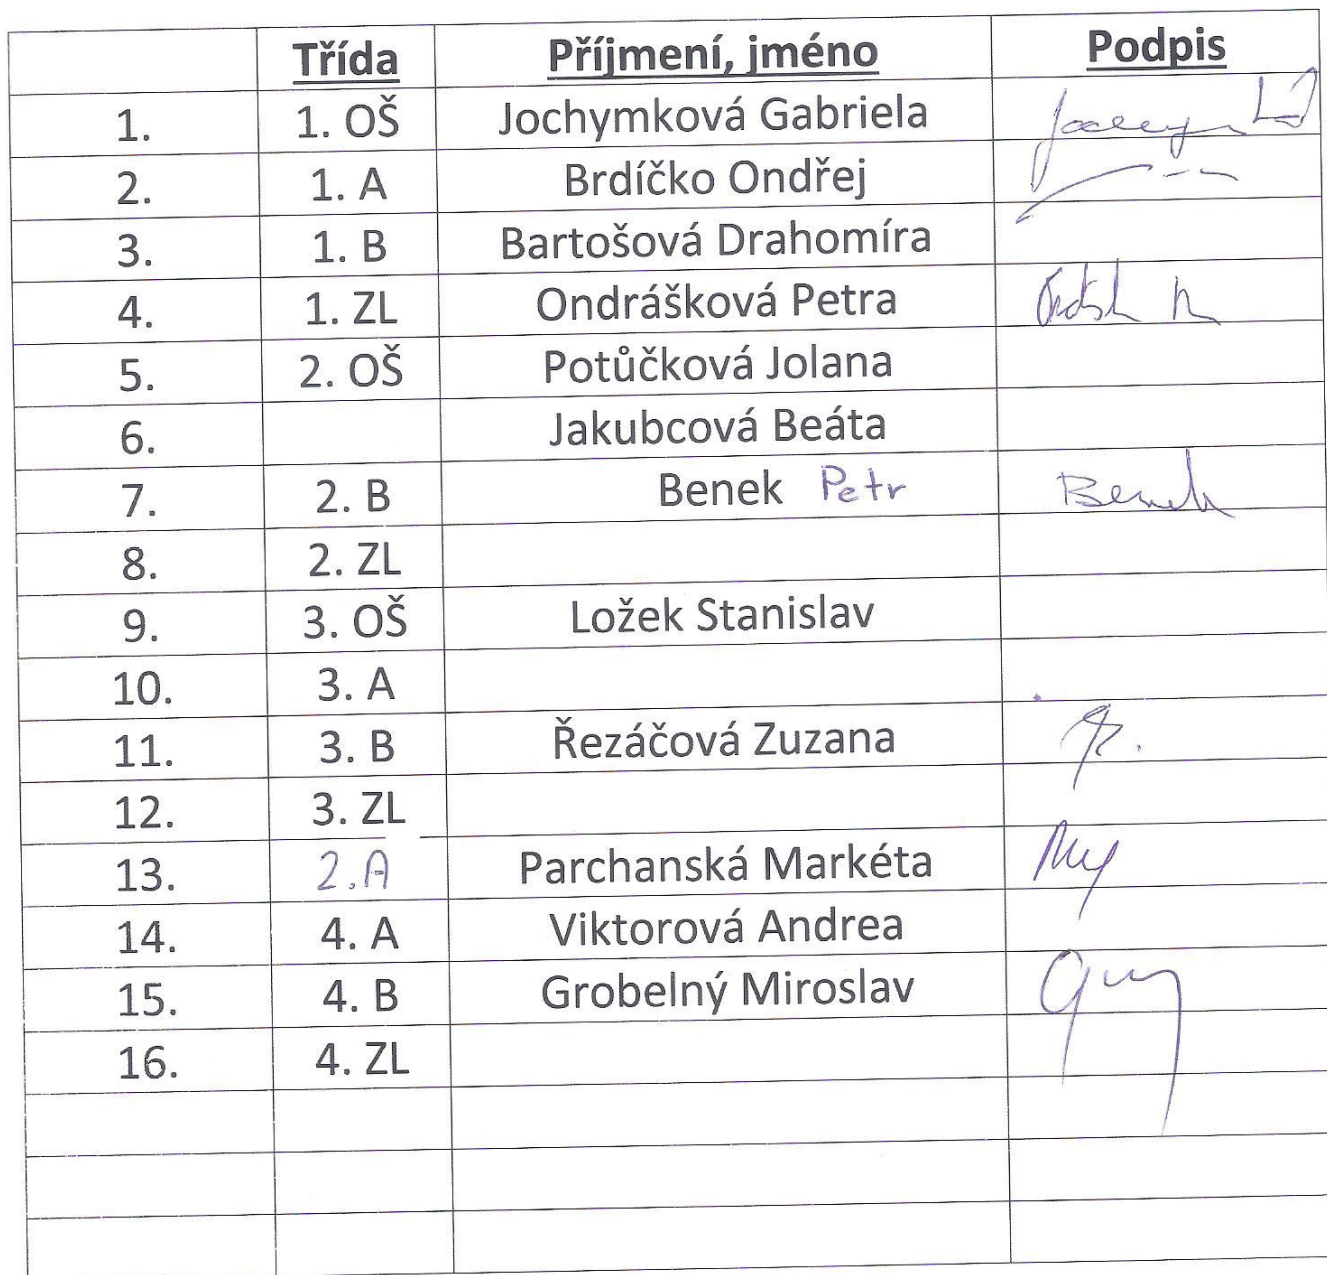 Třída Příjmení, jméno Podpis
1. 1. OŠ Jochymková Gabriela
2. 1. A Brdíčko Ondřej
3. 1. B Bartošová Drahomíra
4. 1. ZL Ondrášková Petra
5. 2. OŠ Potůčková Jolana
6. Jakubcová Beáta
7. 2. B Benek Petr Benek
8. 2. ZL
9. 3. OŠ Ložek Stanislav
10. 3. A
11. 3. B Řezáčová Zuzana
12. 3. ZL
13. 2.A Parchanská Markéta
14. 4. A Viktorová Andrea
15. 4. B Grobelný Miroslav
16. 4. ZL